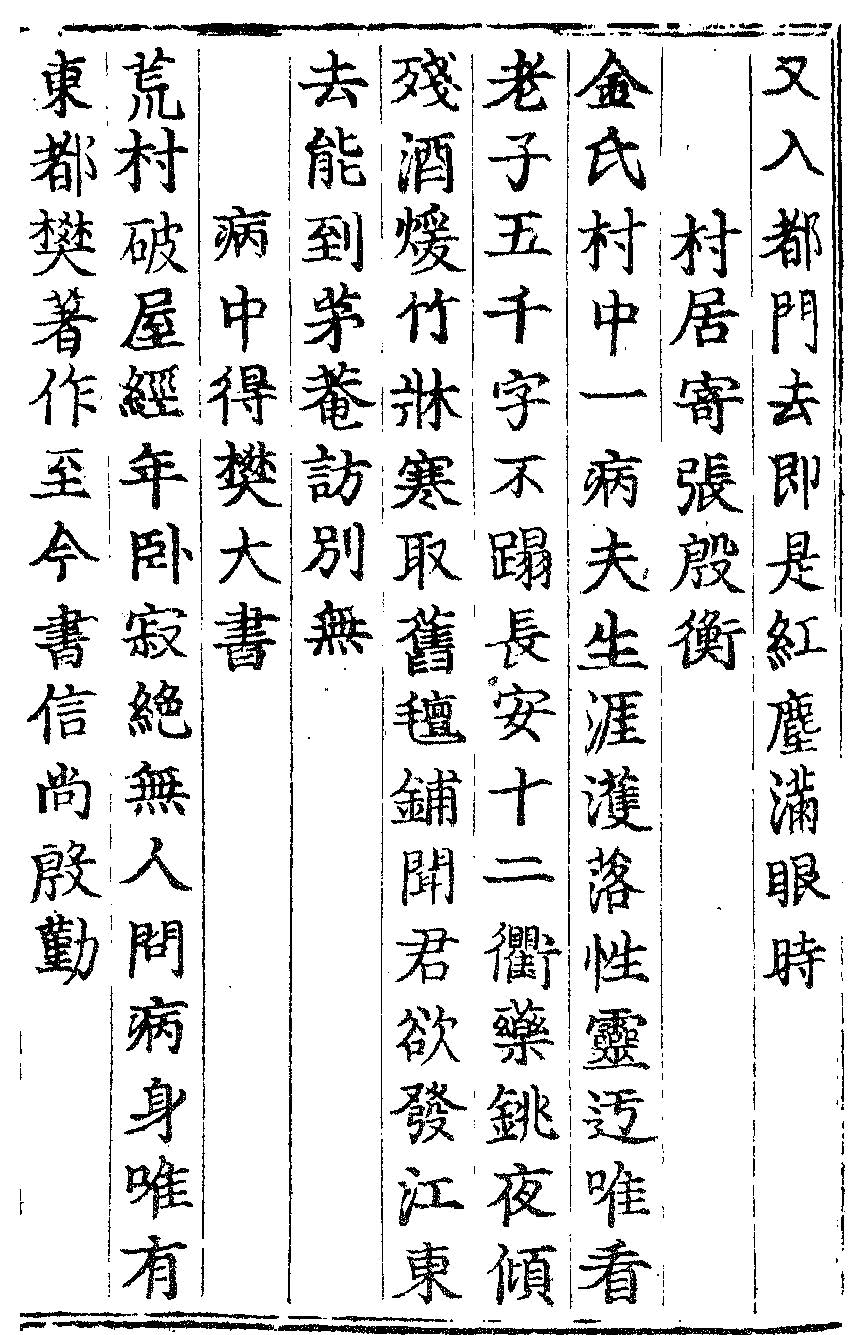 又入都門去即是紅塵滿眼時
村居寄張殷衡
金氏村中一病夫生涯濩落性靈迃唯看
老子五千字不蹋長安十二衢藥銚夜傾
殘酒煖竹牀寒取舊氊鋪聞君欲發江東
去能到茅菴訪別無
病中得樊大書
荒村破屋經年卧寂絕無人問病身唯有
東都樊著作至今書信尚殷勤